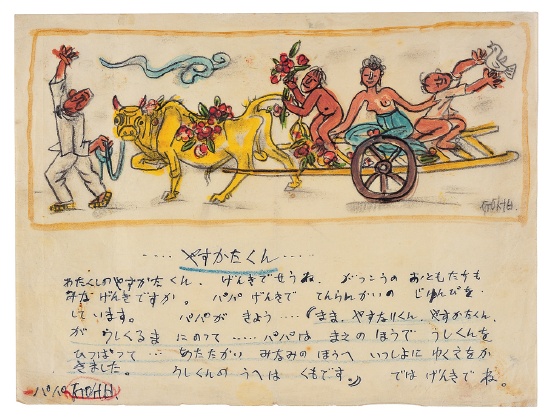 ‥‥ やすかたくん ‥‥
わたくしのやすかたくん、げんきでせうね、がっこうのおともたちも
みなげんきですか。パパげんきで てんらんかいのじゅんびを
しています。 パパがきょう‥‥「まま、やすなりくん、やすかたくん
がうしくるまにのって‥‥パパはまえのほうでうしくんを
ひっぱって‥‥あたたかいみなみのほうへいっしよにゆくえをか
きました。 うしくんのうへはくもです。」 ではげんきでね。
パパ